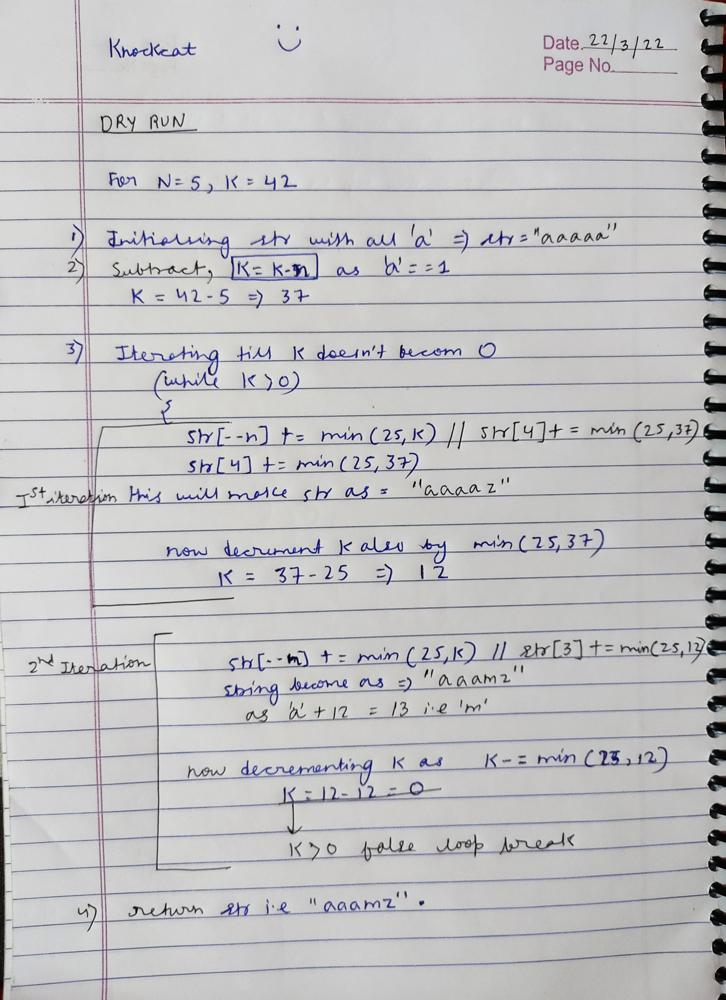 Knockcat
Date 22/3/22
Page No.
DRY RUN
For N=5, K=42
1) Initialising str with all 'a' => str="aaaaa"
2) Subtract, K=K-n as 'a'==1
K=42-5 => 37
3) Iterating till K doesn't becom 0
(while K>0)
{
str[--n] += min(25,K) // str[4]+=min(25,37)
str[4] += min(25,37)
Ist iteration this will make str as = "aaaaz"
now decrement K also by min(25,37)
K = 37-25 => 12
2nd Iteration
str[--n] += min(25,K) // str[3]+=min(25,12)
string become as => "aaamz"
as 'a'+12 = 13 i.e 'm'
now decrementing K as K-=min(25,12)
K=12-12=0
K>0 false loop break
4) return str i.e "aaamz".